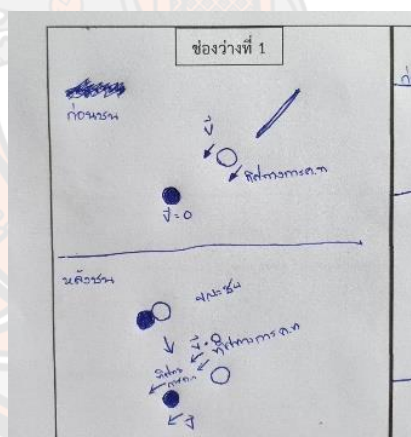 ช่องว่างที่ 1
ก่อนชน
v⃗
ทิศทางการค.ท
v⃗ = 0
หลังชน
ขณะชน
v⃗ = 0
ทิศทางการค.ท
ทิศทาง
การค.ท
v⃗